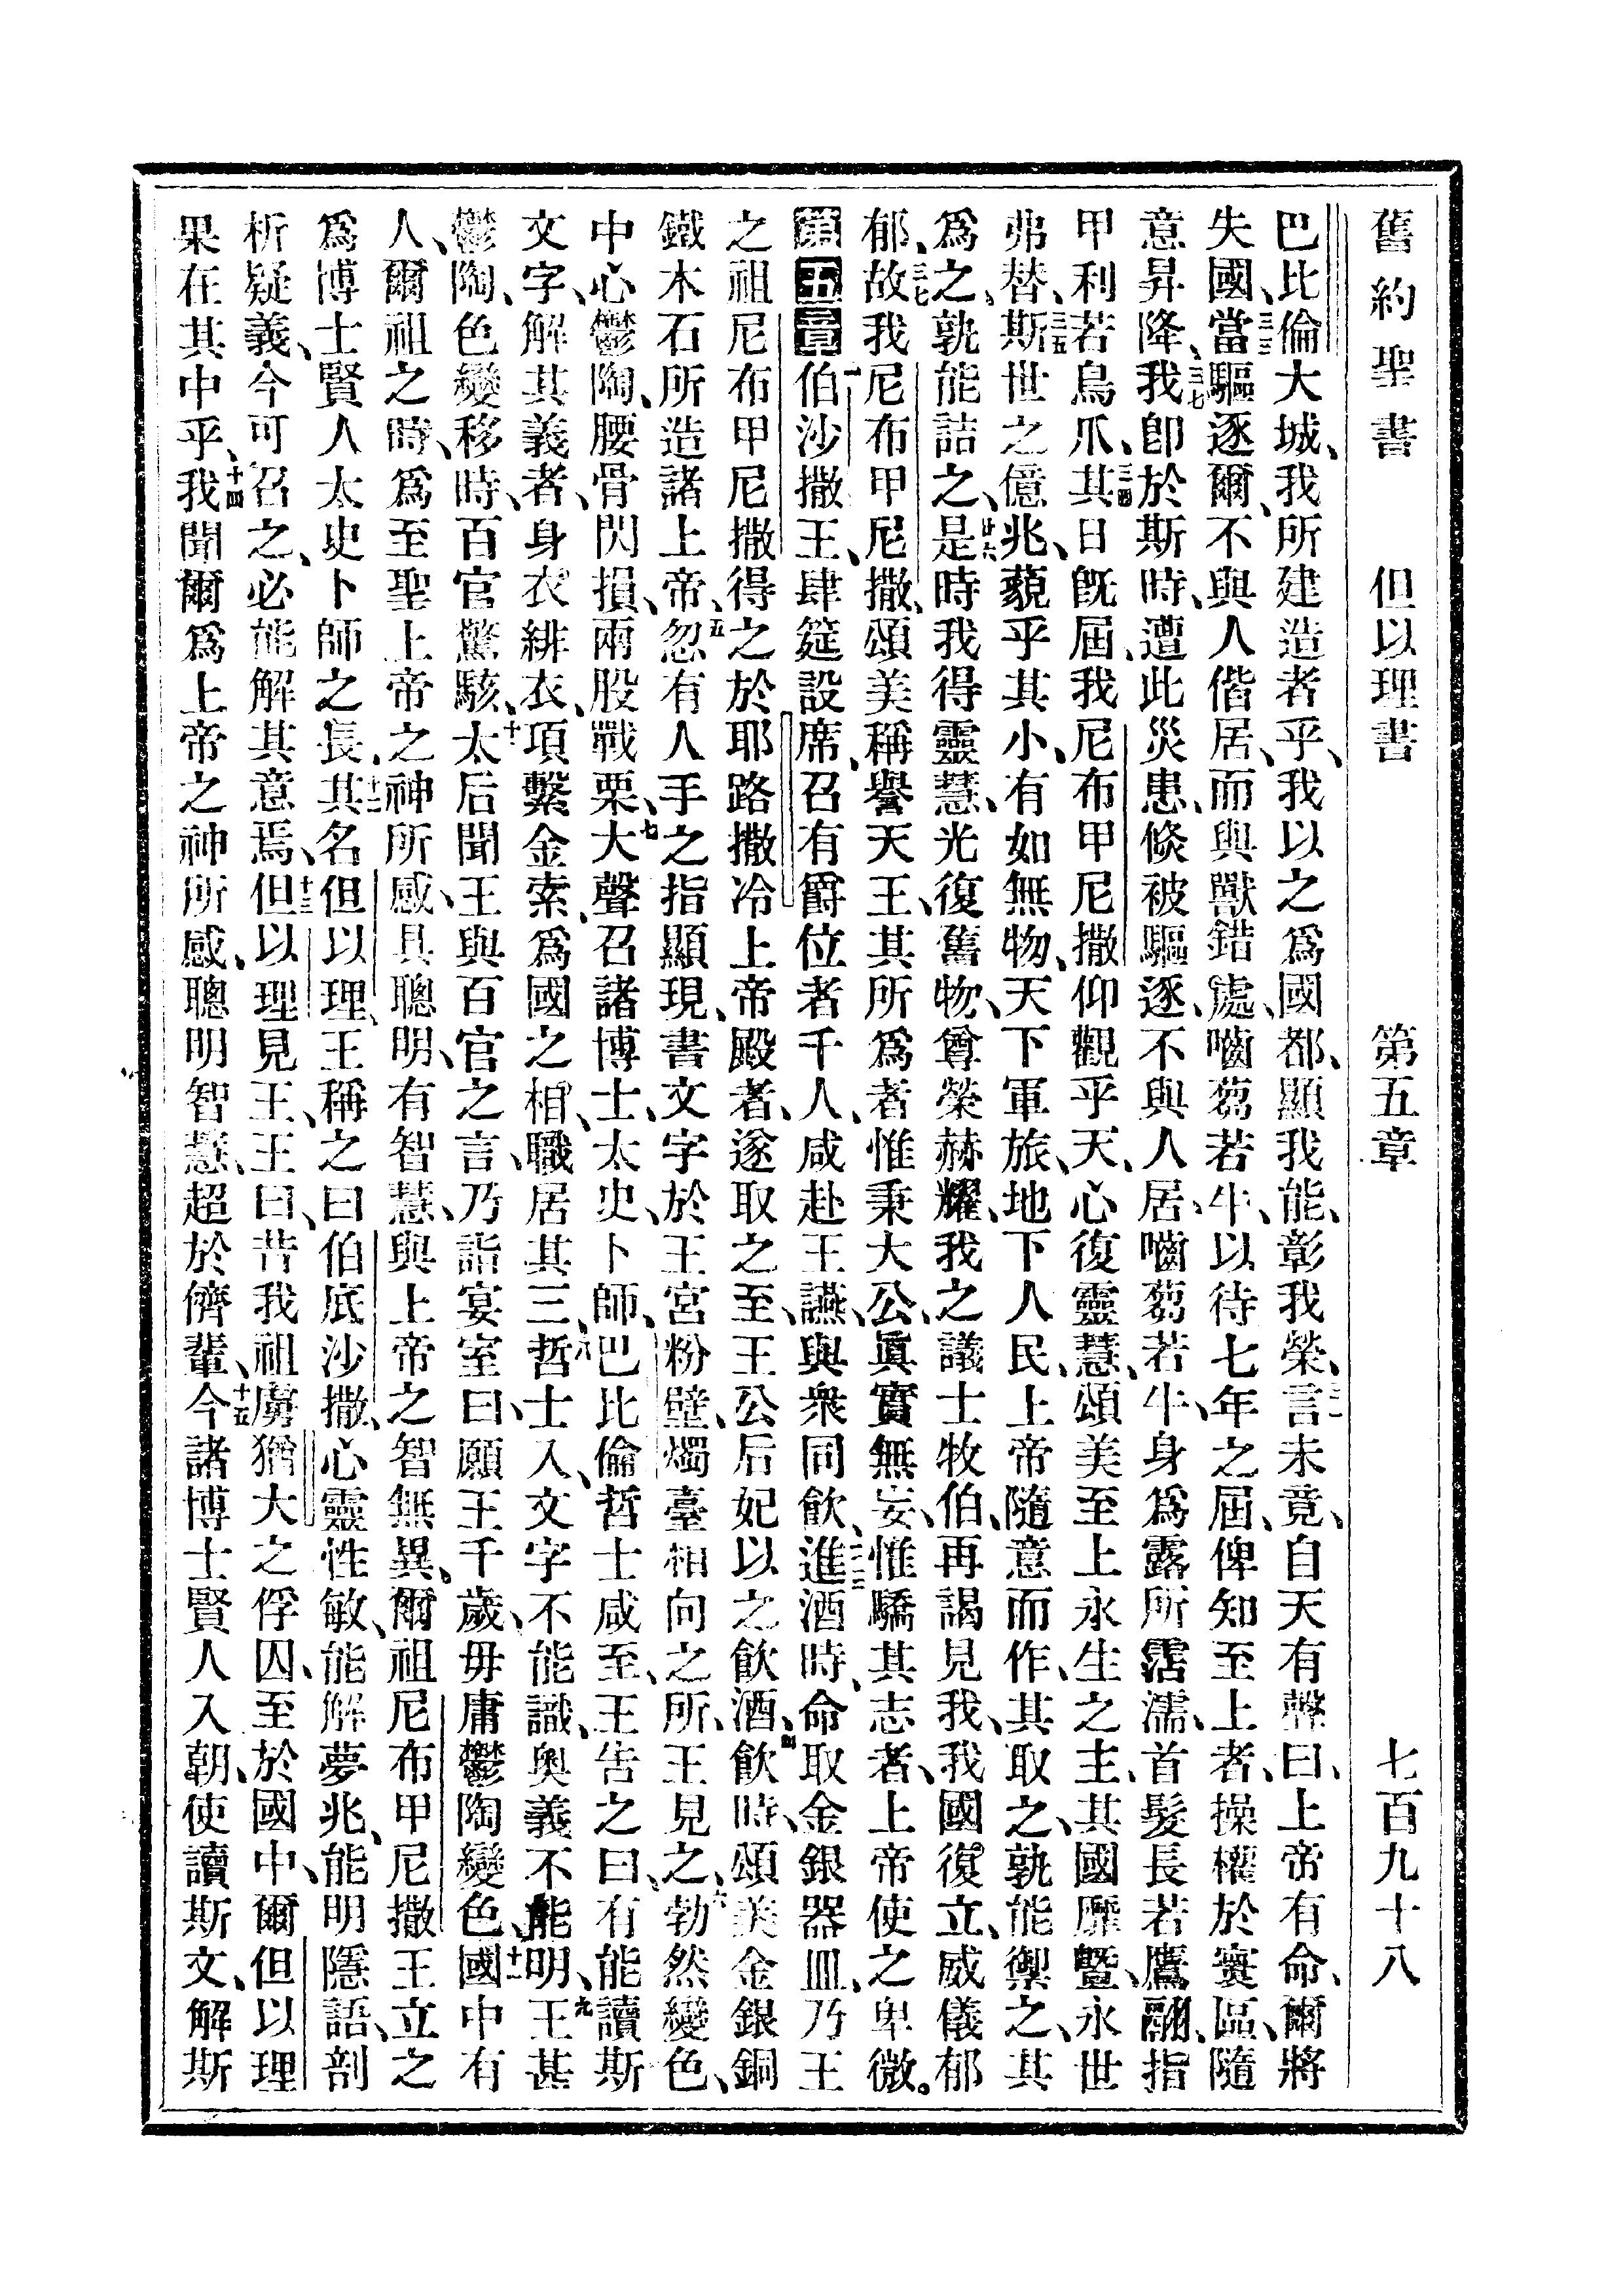 舊約聖書 但以理書 第五章 七百九十八
巴比倫大城、我所建造者乎、我以之爲國都、顯我能、彰我榮、三一言未竟、自天有聲曰、上帝有命、爾將
失國、三二當驅逐爾、不與人偕居、而與獸錯處、嚙芻若牛、以待七年之屆、俾知至上者、操權於寰區、隨
意昇降、三七我卽於斯時、遭此災患、倐被驅逐、不與人居、嚙芻若牛、身爲露所霑濡、首髮長若鷹翮、指
甲利若鳥爪、三四其日旣屆、我尼布甲尼撒仰觀乎天、心復靈慧、頌美至上永生之主、其國靡曁、永世
弗替、三五斯世之億兆、藐乎其小、有如無物、天下軍旅、地下人民、上帝隨意而作、其取之、孰能禦之、其
爲之、孰能詰之、卅六是時我得靈慧、光復舊物、尊榮赫耀、我之議士牧伯、再謁見我、我國復立、威儀郁
郁、三七故我尼布甲尼撒、頌美稱譽天王、其所爲者、惟秉大公、眞實無妄、惟驕其志者、上帝使之卑微。
第五章 一伯沙撒王、肆筵設席、召有爵位者千人、咸赴王讌、與衆同飮、二三進酒時、命取金銀器皿、乃王
之祖尼布甲尼撒得之於耶路撒冷上帝殿者、遂取之至、王公后妃以之飮酒、四飮時、頌美金銀銅
鐵木石所造諸上帝、五忽有人手之指顯現、書文字於王宮粉壁、燭臺相向之所、王見之、六勃然變色、
中心鬱陶、腰骨閃損、兩股戰栗、七大聲召諸博士、太史、卜師、巴比倫哲士咸至、王告之曰、有能讀斯
文字、解其義者、身衣緋衣、項繫金索、爲國之相、職居其三、八哲士入、文字不能識、奧義不能明、九王甚
鬱陶、色變移時、百官驚駭、十太后聞王與百官之言、乃詣宴室曰、願王千歲、毋庸鬱陶變色、十一國中有
人、爾祖之時、爲至聖上帝之神所感、具聰明、有智慧、與上帝之智無異、爾祖尼布甲尼撒王立之
爲博士賢人太史卜師之長、十二其名但以理、王稱之曰伯底沙撒、心靈性敏、能解夢兆、能明隱語、剖
析疑義、今可召之、必能解其意焉、十三但以理見王、王曰、昔我祖虜猶大之俘囚、至於國中、爾但以理
果在其中乎、十四我聞爾爲上帝之神所感、聰明智慧、超於儕輩、十五今諸博士賢人入朝、使讀斯文、解斯